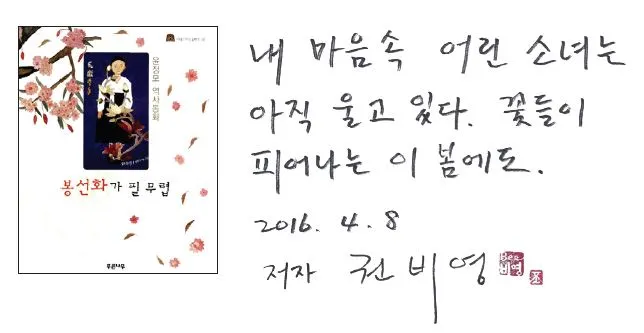 윤정모 역사동화
봉선화가 필 무렵
푸른나무
내 마음속 어린 소녀는
아직 울고 있다. 꽃들이
피어나는 이 봄에도.
2016. 4. 8
저자 권비영
비영